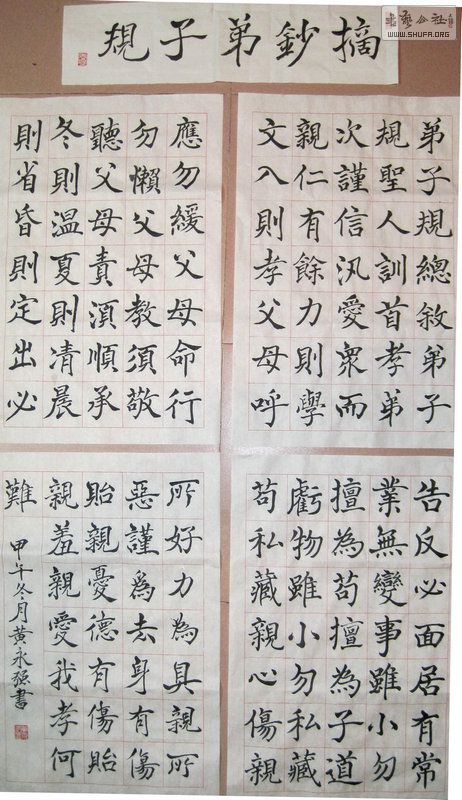 摘鈔弟子規
弟子規總敘弟子
規聖人訓首孝弟
次謹信汎愛衆而
親仁有餘力則學
文入則孝父母呼
應勿緩父母命行
勿懶父母教須敬
聽父母責湏順承
冬則温夏則凊晨
則省昏則定出必
告反必面居有常
業無變事雖小勿
擅為苟擅為子道
虧物雖小勿私藏
苟私藏親心傷親
所好力為具親所
惡謹爲去身有傷
貽親憂德有傷貽
親羞親愛我孝何
難
甲午冬月黄永强書
WWW.SHUFA.ORG